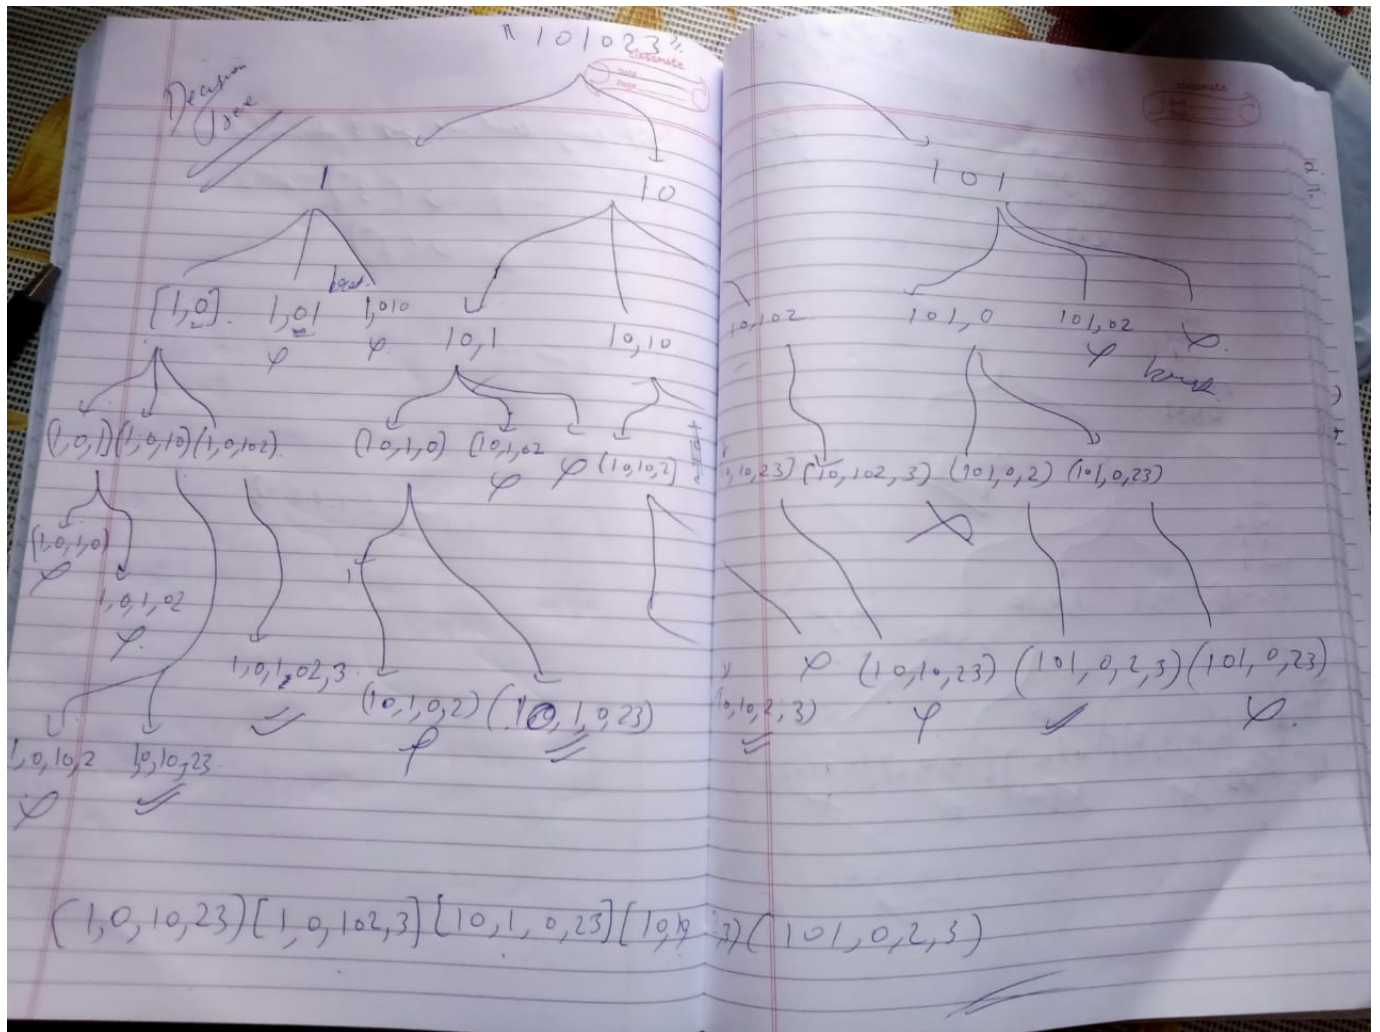 "101023"
classmate
Date
Page
classmate
Decision
Tree
1 10 101
[1,0] 1,01 1,010 10,1 10,10 10,102 101,0 101,02 φ
φ φ φ
(1,0,1) (1,0,10) (1,0,102) (10,1,0) (10,1,02 φ (10,10,2] ,10,23) (10,102,3) (101,0,2) (101,0,23)
φ
(1,0,1,0)
φ
1,0,1,02
φ
1,0,1,02,3 (10,1,0,2) (10,1,0,23) 10,10,2,3) φ (10,10,23) (101,0,2,3) (101,0,23)
φ φ φ
1,0,10,2 1,0,10,23
φ
(1,0,10,23) [1,0,102,3] [10,1,0,23] [10,10 3) (101,0,2,3)